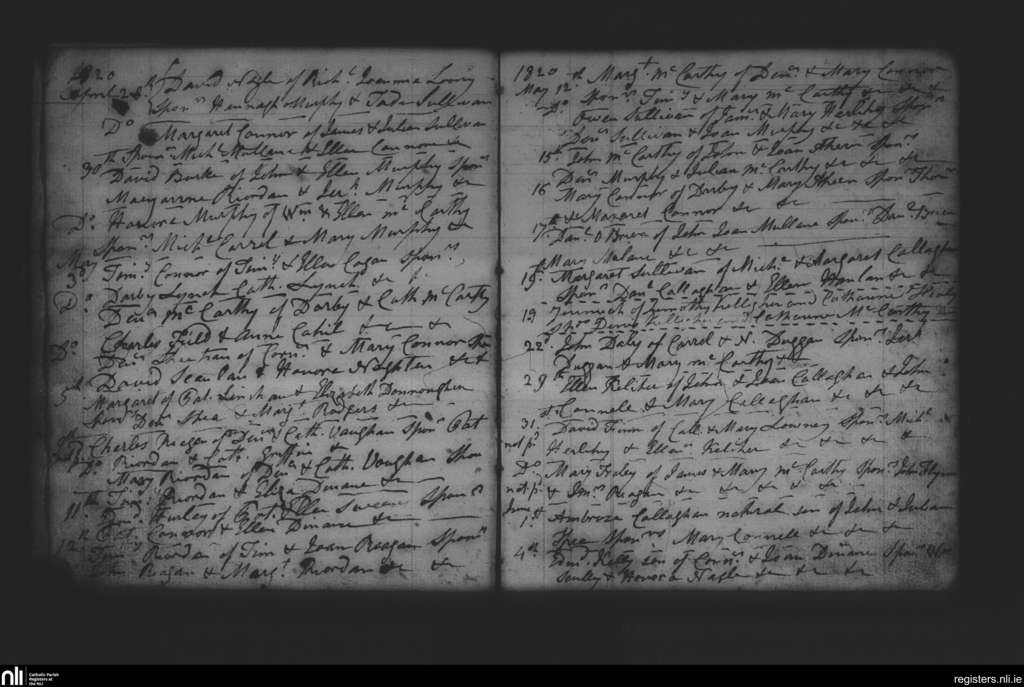 1820
April 28 David Nagle of Richd Joanna Lowry
Sponrs Hannagh Murphy & Tade Sullivan
Do Margaret Connor of James & Julian Sullivan
Sponrs Michl Mullane & Ellen Connor &
30th David Burke of John & Ellen Murphy Sponrs
Margarine Riordan & Jerh Murphy &c
Do Honora Murphy of Wm & Ellen Mc Carthy
Sponrs Michl Carrol & Mary Murphy &
May
3d Timy Connor of Timy & Ellen Cogan Sponrs
Darby Lynch Cath. Lynch &c
Do Denn Mc Carthy of Darby & Cath Mc Carthy
Charles Field & Anne Cahil &c &
Do Denn Sheehan of Corns & Mary Connor
David Scanlan & Honora Naghten &c &
5th Margaret of Pat. Linehan & Elizabeth Donnoughue
Denn Shea & Margt Rodgers &c
Charles Reagan of & Cath. Vaughan Sponrs Pat
Riordan & Cath. Griffin
Do Mary Riordan of Denn & Cath. Vaughan
Timy Riordan & Eliza Dinane &c
11th Hurley of Pat. Ellen Sweeny Sponrs
Pat. Connor & Ellen Dinane &c
12 Timy Riordan of Tim & Joan Reagan Sponrs
Ragan & Margt Riordan &c &c
1820
May 12th Margt Mc Carthy of Denn & Mary Connor
Sponrs Timy & Mary Mc Carthy &c &c
Do Owen Sullivan of Jams & Mary Herlihy Sponrs
Denn Sullivan & Joan Murphy &c &c &c
15th John Mc Carthy of John & Joan Ahern Sponrs
Denn Murphy & Julian Mc Carthy &c &c &c
16 Mary Connor of Darby & Mary Aheen Sponrs Thoms
& Margaret Connor &c &c
17th Danl O Brien of John Joan Mullane Sponrs Danl Brien
& Mary Malane &c &c
19th Margaret Sullivan of Michl & Margaret Callaghan
Sponrs Danl Callaghan & Ellen Hanlan &c &c
19 Jeremiah of Timothy Kelleher and Catharine
Spors Denis and Catharine McCarthy
22d John Daly of Carrol & N. Duggan Sponrs Jerh
Duggan & Mary Mc Carthy &c
29th Ellen Keliher of John & Joan Callaghan & John
Connell & Mary Callaghan &c &c
31st David Finn of Call. & Mary Lowney Sponrs Michl
not pd Herlihy & Ellen Keliher &c &c &c
Do Mary Foley of James & Mary Mc Carthy Sponrs John Flynn
not pd & Jno Reagan &c &c &c &c
June
1st Ambrose Callaghan natural son of John & Julian
Shea Sponrs Mary Connell &c &c
4th Edmd Kelly son of Corns & Joan Dinane Sponrs
Scully & Honora Nagle &c &c &c
nli
Catholic Parish
Registers at
the NLI
registers.nli.ie